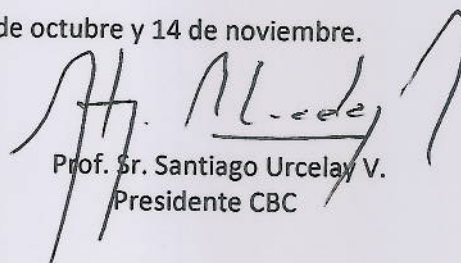 de octubre y 14 de noviembre.
Prof. Sr. Santiago Urcelay V.
Presidente CBC